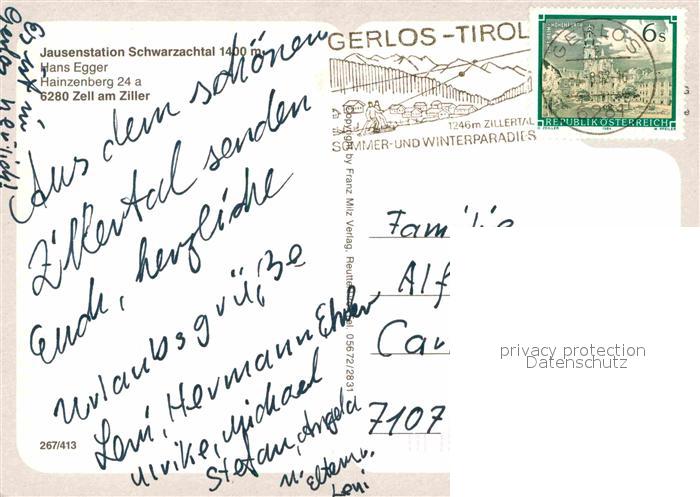 Jausenstation Schwarzachtal 1400 m
Hans Egger
Hainzenberg 24 a
6280 Zell am Ziller
Es ist in
Gerlos herrlich!
Aus dem schönen
Zillertal senden
Euch, herzliche
Urlaubsgrüße
Leni, Hermann
Ulrike, Michael
Stefan, Angela
Leni
267/413
Copyright by Franz Milz Verlag, Reutte
05672/2831
GERLOS-TIROL
1246m ZILLERTAL
SOMMER- UND WINTERPARADIES
GERLOS
6s
REPUBLIK ÖSTERREICH
Familie
Alf
Car
7107
privacy protection
Datenschutz